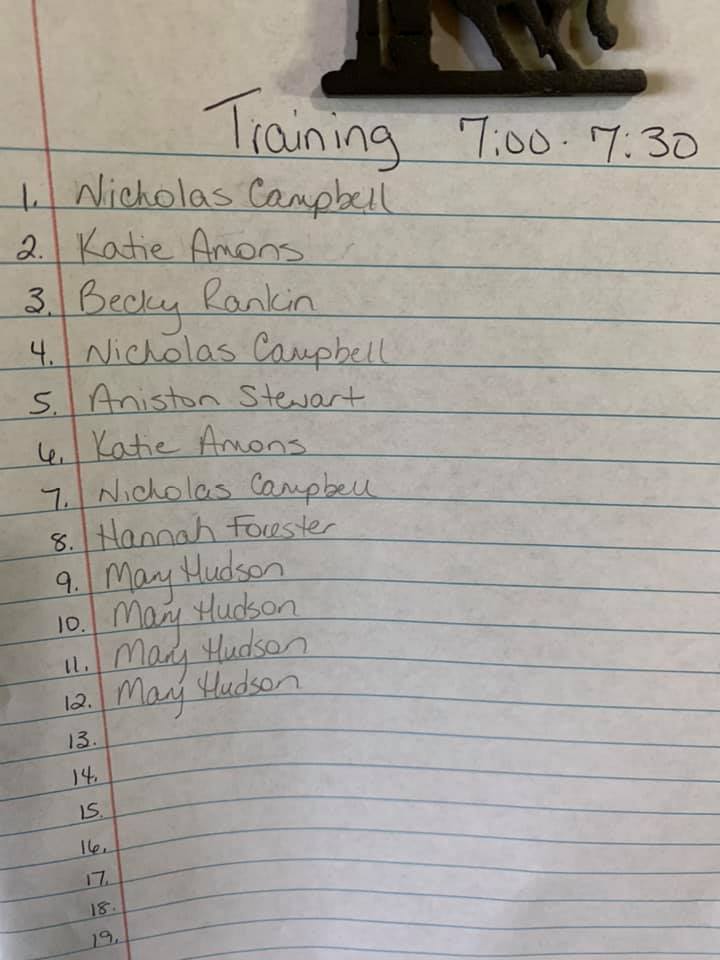 Training 7:00 - 7:30
1. Nicholas Campbell
2. Katie Amons
3. Becky Rankin
4. Nicholas Campbell
5. Aniston Stewart
6. Katie Amons
7. Nicholas Campbell
8. Hannah Forester
9. Mary Hudson
10. Mary Hudson
11. Mary Hudson
12. Mary Hudson
13.
14.
15.
16.
17.
18.
19.